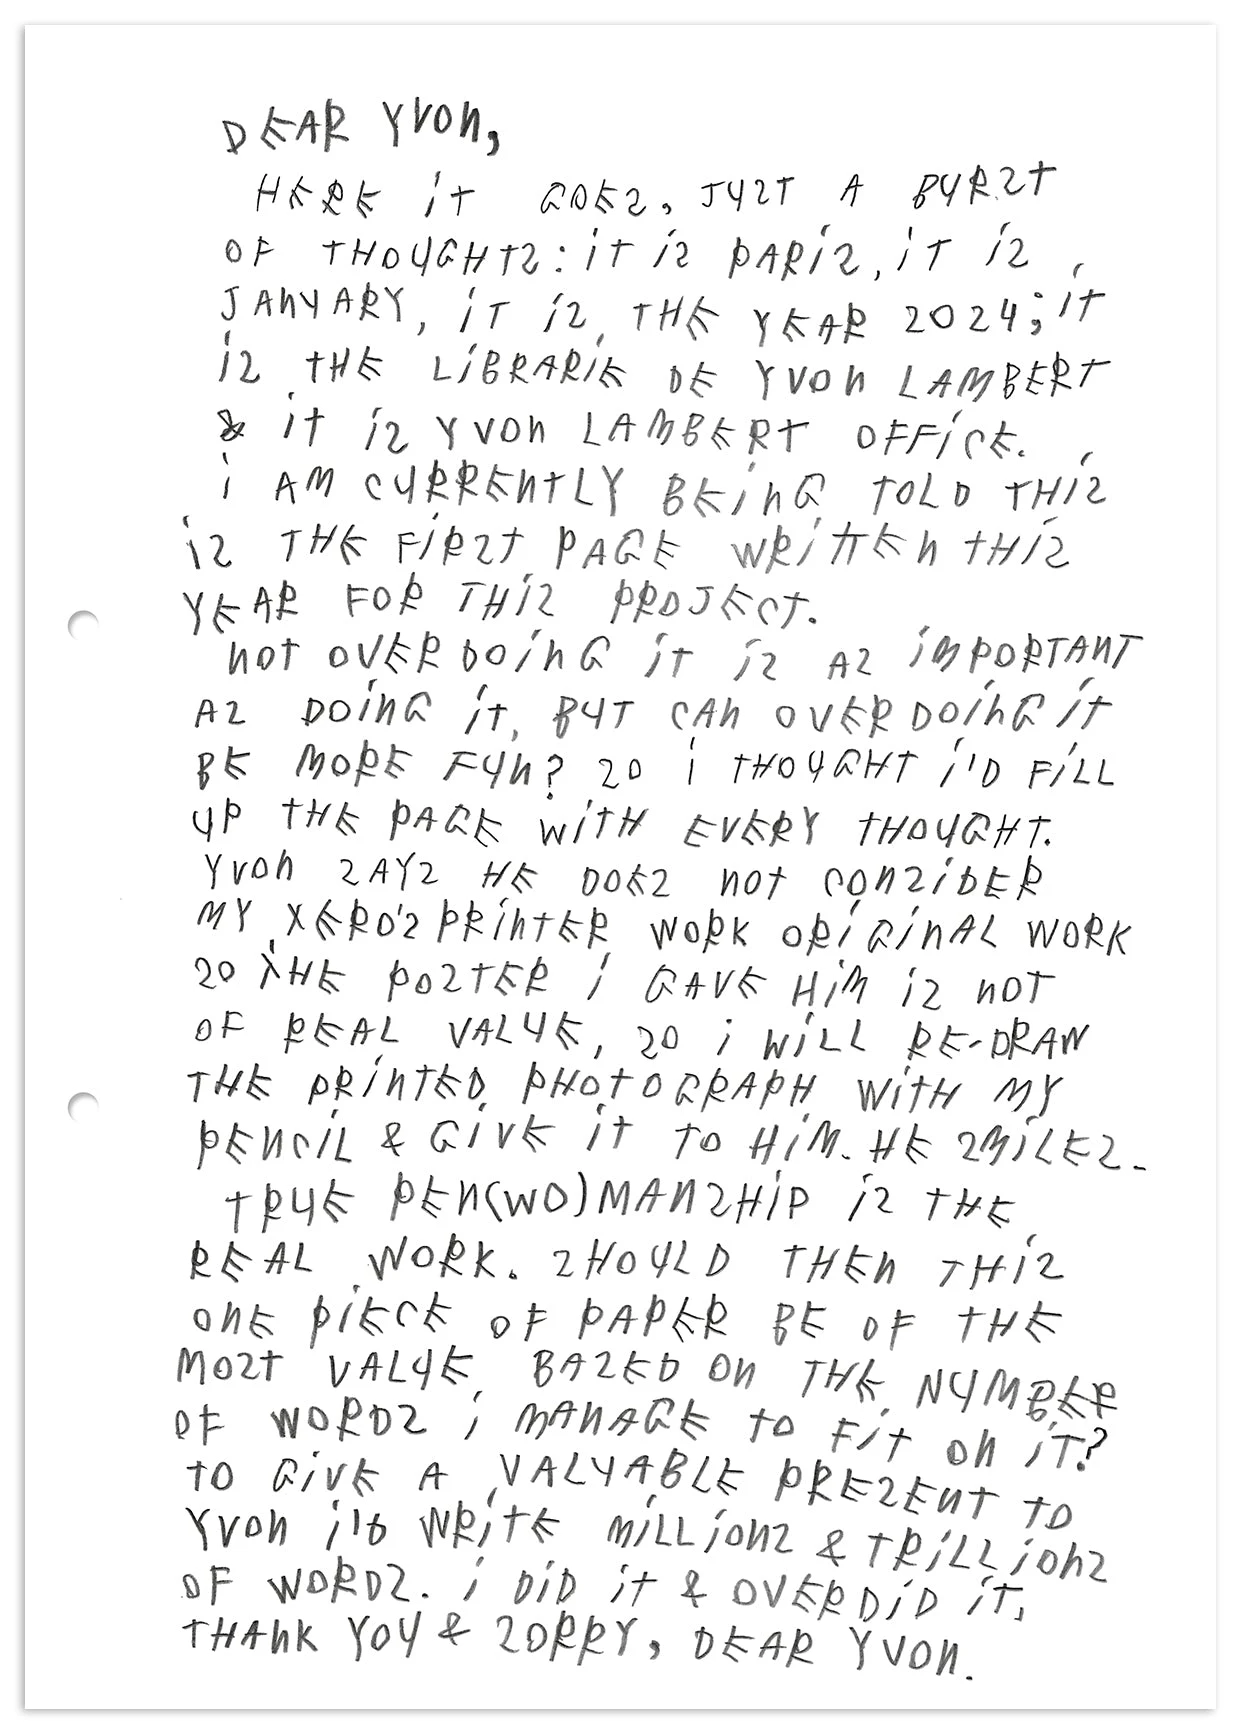 DEAR YVON,
HERE iT GOES, JUST A BURST
OF THOUGHTS: iT iS PARiS, iT iS
JANUARY, iT iS THE YEAR 2024; iT
iS THE LiBRARiE DE YVON LAMBERT
& iT iS YVON LAMBERT OFFiCE.
i AM CURRENTLY BEiNG TOLD THiS
iS THE FiRST PAGE WRiTTEN THiS
YEAR FOR THiS PROJECT.
NOT OVERDOiNG iT iS AS iMPORTANT
AS DOiNG iT, BUT CAN OVERDOiNG iT
BE MORE FUN? SO i THOUGHT i'D FiLL
UP THE PAGE WiTH EVERY THOUGHT.
YVON SAYS HE DOES NOT CONSiDER
MY XERO'S PRiNTER WORK ORiGiNAL WORK
SO THE POSTER i GAVE HiM iS NOT
OF REAL VALUE, SO i WiLL RE-DRAW
THE PRiNTED PHOTOGRAPH WiTH MY
PENCiL & GiVE iT TO HiM. HE SMiLES.
TRUE PEN(WO)MANSHiP iS THE
REAL WORK. SHOULD THEN THiS
ONE PiECE OF PAPER BE OF THE
MOST VALUE BASED ON THE NUMBER
OF WORDS i MANAGE TO FiT ON iT?
TO GiVE A VALUABLE PRESENT TO
YVON i'D WRiTE MiLLiONS & TRiLLiONS
OF WORDS. i DiD iT & OVERDiD iT,
THANK YOU & SORRY, DEAR YVON.